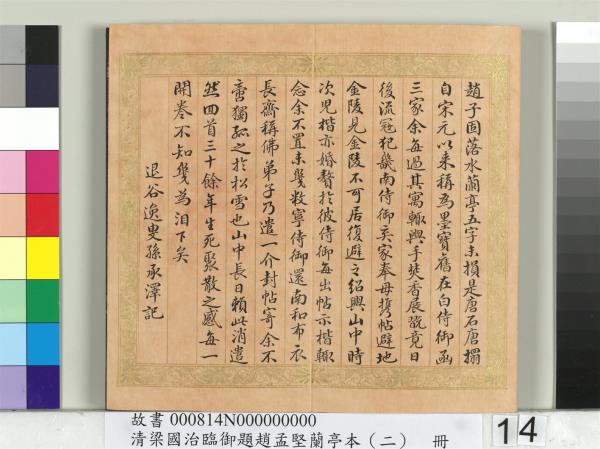 趙子固落水蘭亭五字未損是唐石唐搨
自宋元以来稱為墨寶舊在白侍御函
三家余每過其寓輒與手焚香展翫竟日
後流寇犯畿南侍御奕家奉母携帖避地
金陵見金陵不可居復避之紹興山中時
次児楷亦婚贅於彼侍御每出帖示楷輒
念余不置未幾敉寧侍御還南和布衣
長齋稱佛弟子乃遣一介封帖寄余不
啻獨孤之於松雪也山中長日賴此消遣
然四首三十餘年生死聚散之感每一
開卷不知幾為淚下矣
退谷逸叟孫承澤記
故書 000814N000000000
清梁國治臨御題趙孟堅蘭亭本（二） 冊
14